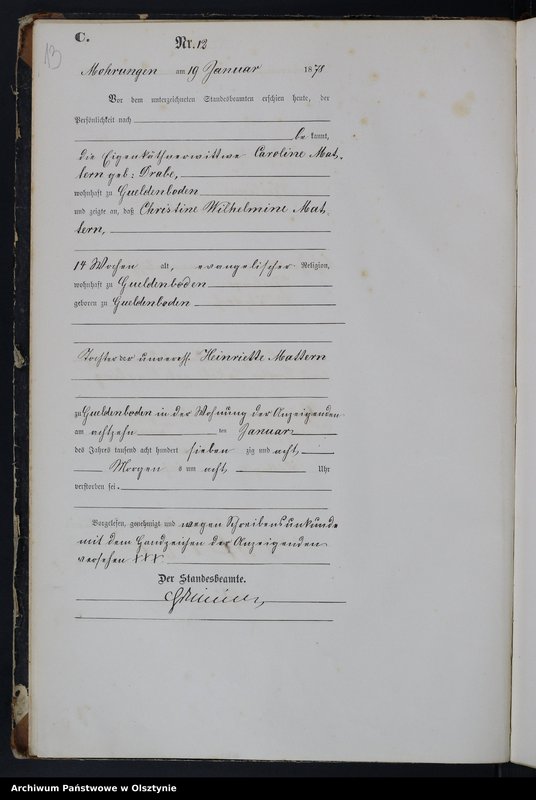 C.
13
Nr. 12
Mohrungen am 19 Januar 1878
Vor dem unterzeichneten Standesbeamten erschien heute, der
Persönlichkeit nach
be kannt,
die Eigenkäthnerwittwe Caroline Mat-
tern geb: Drabe,
wohnhaft zu Gueldenboden
und zeigte an, daß Christine Wilhelmine Mat-
tern,
14 Wochen alt, evangelischer Religion,
wohnhaft zu Gueldenboden
geboren zu Gueldenboden
Tochter der unverehl. Henriette Mattern
zu Gueldenboden in der Wohnung der Anzeigenden
am achtzehn ten Januar
des Jahres tausend acht hundert sieben zig und acht
Morgen s um acht Uhr
verstorben sei.
Vorgelesen, genehmigt und wegen Schreibensunkunde
mit dem Handzeichen der Anzeigenden
versehen +++
Der Standesbeamte.
Archiwum Państwowe w Olsztynie